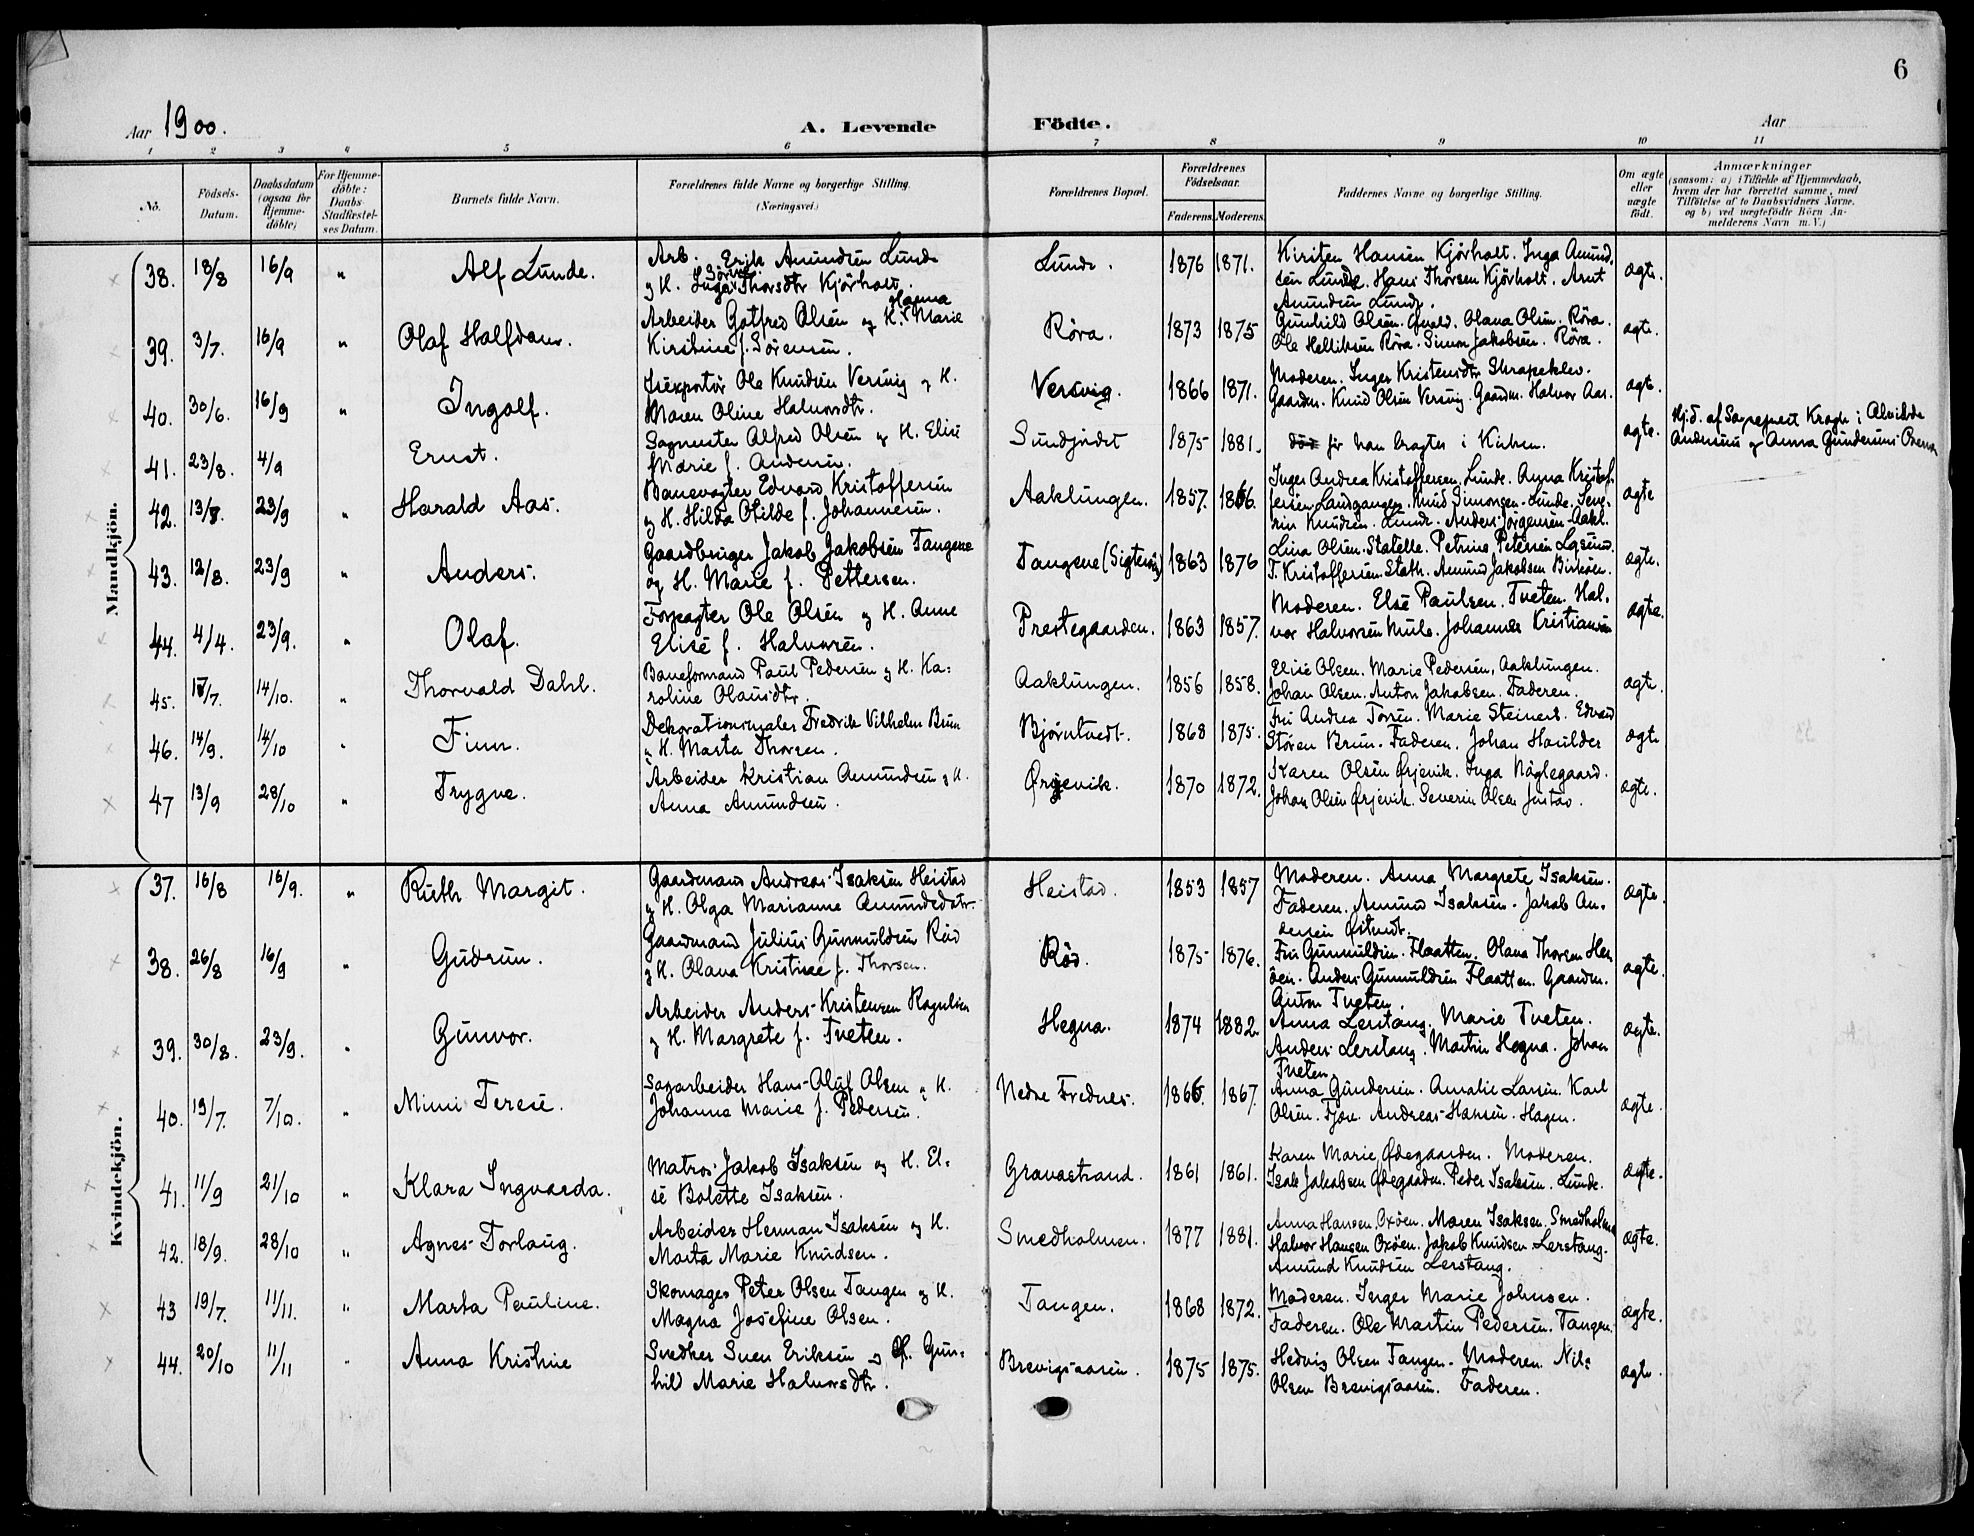 6
Aar 1900.
A. Levende Födte.
Aar
1 2 3 4 5 6 7 8 9 10 11
No.
Födsels-Datum.
Daabsdatum (ogsaa for Hjemme-döbte)
For Hjemme-döbte: Daabs-Stadfæstelses Datum.
Barnets fulde Navn.
Forældrenes fulde Navne og borgerlige Stilling. (Næringsvei.)
Forældrenes Bopæl.
Forældrenes Födselsaar.
Faderens. Moderens.
Faddernes Navne og borgerlige Stilling.
Om ægte eller uægte födt.
Anmærkninger
(saasom: a) i Tilfælde af Hjemmedaab,
hvem der har forrettet samme, med
Tilföielse af to Daabsvidners Navne.
og b) ved uægtefödte Börn An-
melderens Navn m. V.)
Mandkjön.
38. 18/8 16/9 " Alf Lunde.
Arb. Erik Amundsen Lunde
og H. Inga Sörine Thorsdtr Kjörholt.
Lunde. 1876 1871.
Kirsten Hansen Kjörholt. Inga Amund-
sen Lunde. Hans Thorsen Kjörholt. Arnt
Amundsen Lunde.
ægte.
39. 3/7. 16/9 " Olaf Halfdan.
Arbeider Gotfred Olsen og H. Hanna Marie
Kirstine f. Sörensen.
Röra. 1873 1875
Gunhild Olsen. Olava Olsen. Röra.
Ole Helliksen Röra. Simon Jakobsen. Röra.
ægte.
40. 30/6. 16/9 " Ingolf.
Isexportör Ole Knudsen Versvig og H.
Maren Oline Halvorsdtr.
Versvig. 1866 1871.
Moderen. Inger Kristensdtr Skrapeklev.
Gaardm. Knud Olsen Versvig. Gaardm. Halvor Aas.
ægte.
41. 23/8. 4/9 Ernst.
Sagmester Alfred Olsen og H. Elise
Marie f. Andersen.
Sundjordet 1875 1881.
död för han bragtes i Kirken.
ægte.
Hj.d. af Sogneprest Krogh i
Andersens og Anna Gundersens
42. 13/8. 23/9 " Harald Aas.
Banevogter Edvard Kristoffersen
og H. Hilda Otilde f. Johannesen.
Aaklungen. 1857. 1866.
Inger Andrea Kristoffersen. Lunde. Anna Kristof-
fersen Landgangen. Knud Simonsen. Lunde. Seve-
rin Knudsen. Lunde. Anders Jörgensen Aakl.
ægte
43. 12/8. 23/9 " Anders.
Gaardbruger Jakob Jakobsen Tangene
og H. Marie f. Pettersen.
Tangene 1863 1876
Lina Olsen. Statelle. Petrine Petersen
T. Kristoffersen Stath. Amund Jakobsen
ægte.
44. 4/4. 23/9. " Olaf.
Forpagter Ole Olsen og H. Anne
Elise f. Halvorsen.
Prestegaarden. 1863 1857.
Moderen. Else Paulsen. Tveten. Hal-
vor Halvorsen Mule. Johannes Kristiansen
ægte.
45. 17/7. 14/10. " Thorvald Dahl.
Baneformand Paul Pedersen og H. Ka-
roline Olausdtr.
Aaklungen. 1856 1858.
Elise Olsen. Marie Pedersen. Aaklungen.
Johan Olsen. Anton Jakobsen. Faderen.
ægte.
46. 14/9. 14/10 " Finn.
Dekorationsmaler Fredrik Vilhelm Brun
og H. Marta Thorsen.
Bjørntvedt. 1868 1875.
Fru Andrea Marie Steinert. Edvard
Stören Brun. Faderen. Johan
ægte
47 13/9 28/10 " Trygve.
Arbeider Kristian Amundsen og H.
Anna Amundsen.
Ørjevik. 1870 1872.
Karen Olsen Ørjevik. Inga Näglegaard.
Johan Olsen Ørjevik. Severin Olsen
ægte.
Kvindekjön.
37. 16/8 16/9. " Ruth Margit.
Gaardmand Andreas Isaksen Heistad
og H. Olga Marianne Amundsdtr.
Heistad. 1853 1857
Moderen. Anna Margrete Isaksen.
Faderen. Amund Isaksen. Jakob An-
dersen
ægte.
38. 26/8 16/9 " Gudrun.
Gaardmand Julius Gunnuldsen Röd
og H. Olava Kristine f. Thorsen.
Röd. 1875 1876.
Fru Gunnuldsen. Flaatten. Olava Thorsen
Anders Gunnuldsen Flaatten. Gaardm.
Anton Tveten.
ægte.
39. 30/8. 23/9. " Gunvor.
Arbeider Anders Kristensen
og H. Margrete f. Tveten.
Hegna. 1874 1882.
Anna Lerstang. Marie Tveten.
Anders Lerstang. Martin Hegna. Johan
Tveten.
ægte.
40. 19/7. 7/10. " Mimi Terese.
Sagarbeider Hans Oluf Olsen og H.
Johanna Marie f. Pedersen.
Nedre Frednes. 1866. 1867.
Anna Gundersen. Amalie Larsen. Karl
Olsen. Andreas Hansen. Hagen.
ægte.
41. 11/9 21/10 " Klara Ingvarda.
Matros Jakob Isaksen og H. El-
se Bolette Isaksen.
Gravastrand. 1861 1861.
Karen Marie Ødegaarden. Moderen.
Isak Jakobsen Ødegaarden. Peder Isaksen. Lunde.
ægte.
42. 18/9. 28/10 " Agnes Torlaug.
Arbeider Herman Isaksen og H.
Marta Marie Knudsen.
Smedholmen. 1877 1881.
Anna Hansen. Oxöen. Maren Isaksen. Smedholmen
Halvor Hansen Oxöen. Jakob Knudsen Lerstang.
Amund Knudsen Lerstang.
ægte.
43 19/7. 11/11. " Marta Pauline.
Skomager Peter Olsen Tangen og H.
Magna Josefine Olsen.
Tangen. 1868 1872.
Moderen. Inger Marie Johnsen.
Faderen. Ole Martin Pedersen. Tangen.
ægte.
44. 20/10 11/11 " Anna Kristine
Snedker Sven Eriksen og H. Gun-
hild Marie Halvorsdtr.
Brevigsaasen. 1875 1875.
Hedvig Olsen Tangen. Moderen. Nils
Olsen Brevigsaasen. Faderen.
ægte.